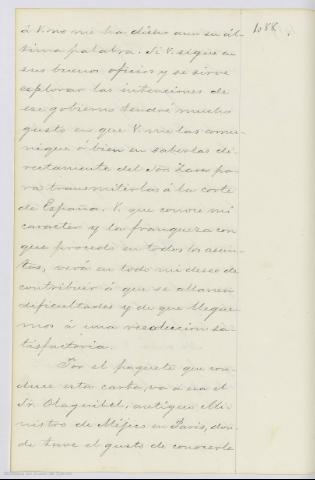 1088
á V. no me ha dicho aun su úl-
tima palabra. Si V. sigue en
sus buenos oficios y se sirve
explorar las intenciones de
ese gobierno tendré mucho
gusto en que V. me las comu-
nique ó bien en saberlas di-
rectamente del Sor. Zarco pa-
ra transmitirlas á la corte
de España. V. que conoce mi
caracter y la franqueza con
que procedo en todos los asun-
tos, verá en todo mi deseo de
contribuir á que se allanen
dificultades y de que llegue-
mos á una resolucion sa-
tisfactoria.
Por el paquete que con-
duce esta carta, va á esa el
Sr. Olaguibel, antiguo Mi-
nistro de Méjico en Paris, don-
de tuve el gusto de conocerle